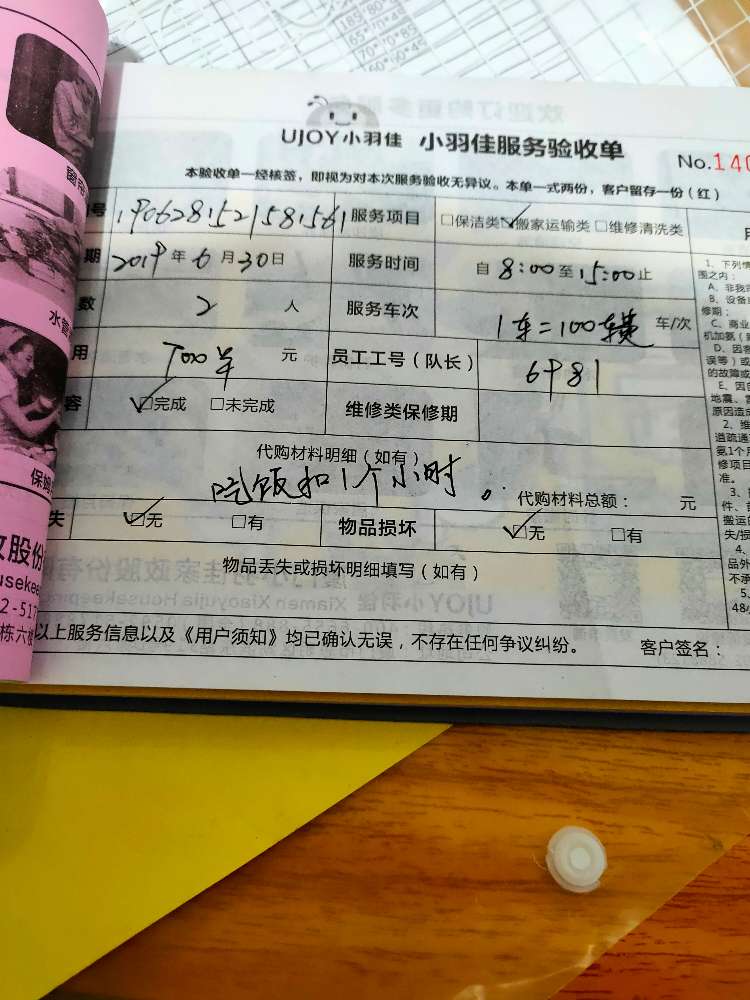 185
80*85
65*70*85
70*80
60*60*45
UJOY小羽佳 小羽佳服务验收单
No.140
本验收单一经核签，即视为对本次服务验收无异议。本单一式两份，客户留存一份（红）
号 1906281521581561 服务项目 □保洁类 ☑搬家运输类 □维修清洗类
期 2019年6月30日 服务时间 自8:00至15:00止
数 2 人 服务车次 1车= 车/次
用 元 员工工号（队长） 6981
容 ☑完成 □未完成 维修类保修期
代购材料明细（如有）
吃饭扣1个小时。 代购材料总额： 元
失 ☑无 □有 物品损坏 ☑无 □有
物品丢失或损坏明细填写（如有）
以上服务信息以及《用户须知》均已确认无误，不存在任何争议纠纷。 客户签名：
水管
保姆
股份
usekee
2-517
栋六楼
1、下列情
围之内：
A、非我
B、设备
修期：
C、商业
机加氨（
D、因客
误等）或
的故障或
E、因自
地震、
原因造成
2、维
道疏通
氨1个月
修项目
准。
3、
件、
搬运
失/损
4、
品外
不承
5、
48小